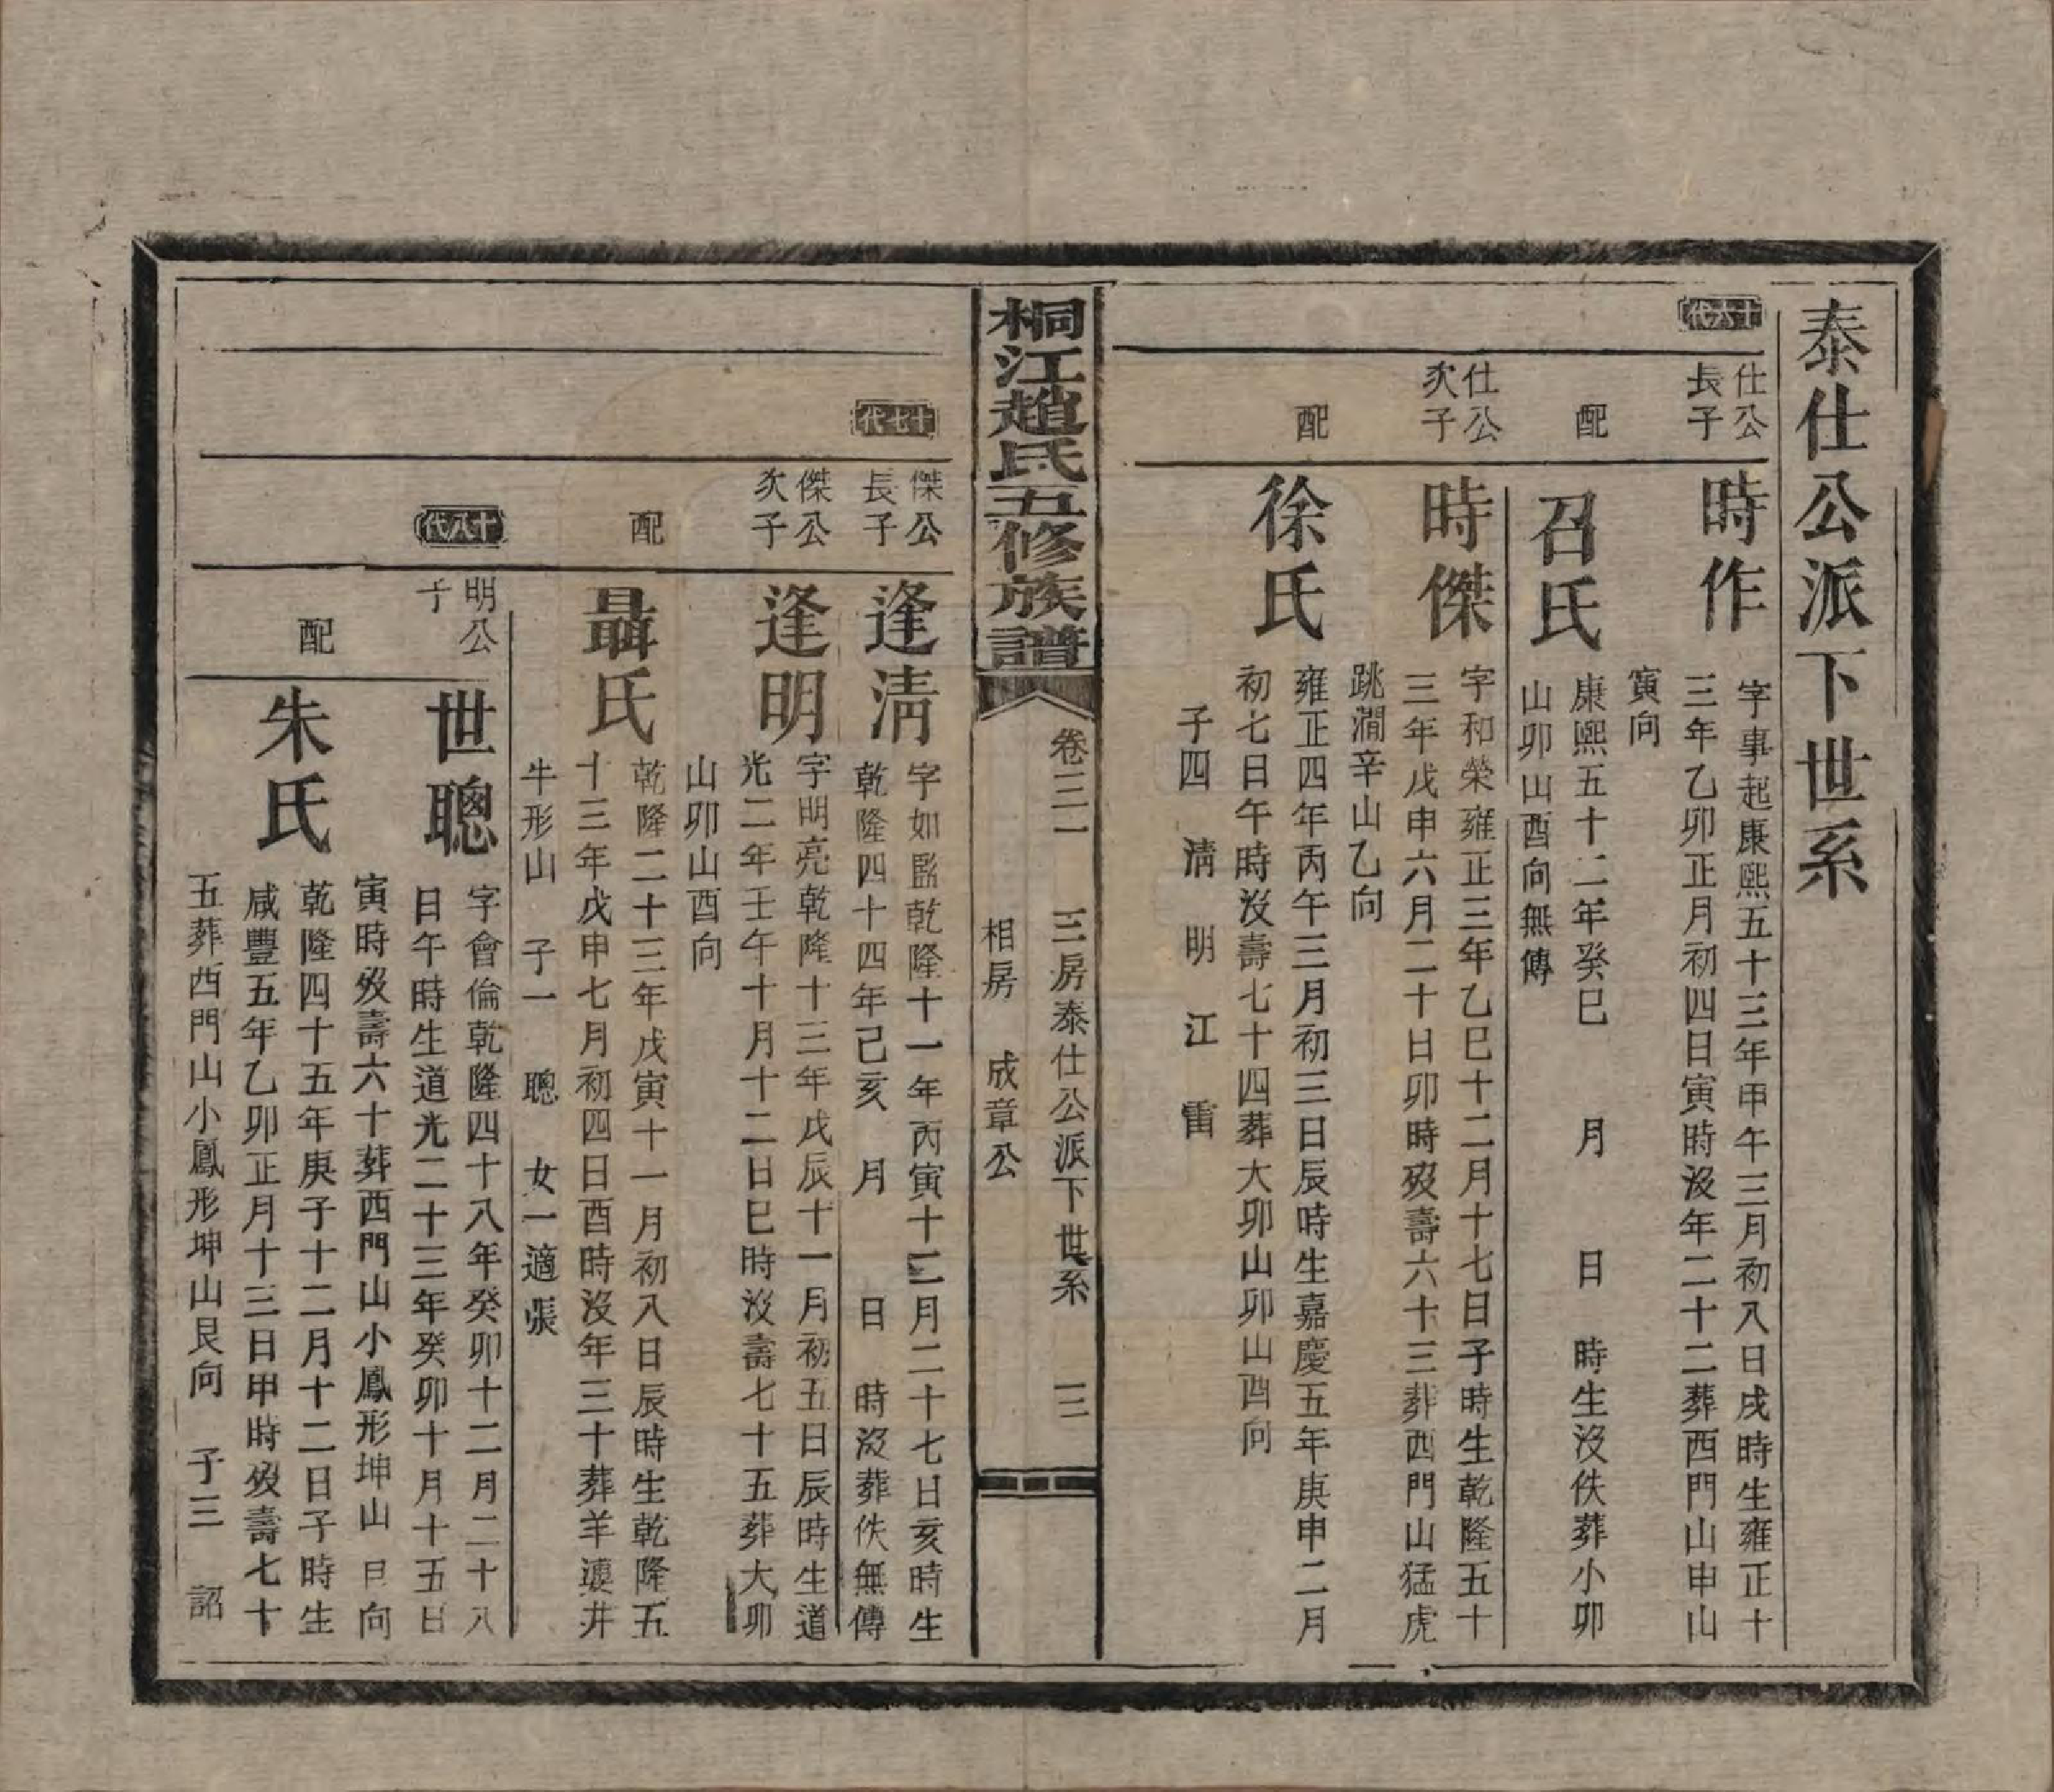 泰仕公派下世系
十六代
仕公
長子
時作
字事起康熙五十三年甲午三月初八日戌時生雍正十
三年乙卯正月初四日寅時沒年二十二葬西門山申山
寅向
配
召氏
康熙五十二年癸巳 月 日 時生沒佚葬小卯
山卯山酉向無傳
仕公
次子
時傑
字和榮雍正三年乙巳十二月十七日子時生乾隆五十
三年戊申六月二十日卯時歿壽六十三葬西門山猛虎
跳澗辛山乙向
配
徐氏
雍正四年丙午三月初三日辰時生嘉慶五年庚申二月
初七日午時沒壽七十四葬大卯山卯山酉向
子四 清 明 江 雷
桐江趙氏五修族譜
卷三一 三房泰仕公派下世系 三
相房 成章公
十七代
傑公
長子
逢清
字如監乾隆十一年丙寅十二月二十七日亥時生
乾隆四十四年己亥 月 日 時沒葬佚無傳
傑公
次子
逢明
字明亮乾隆十三年戊辰十一月初五日辰時生道
光二年壬午十月十二日巳時沒壽七十五葬大卯
山卯山酉向
配
聶氏
乾隆二十三年戊寅十一月初八日辰時生乾隆五
十三年戊申七月初四日酉時沒年三十葬羊井
牛形山 子一 聰 女一適張
十八代
明公
子
世聰
字會倫乾隆四十八年癸卯十二月二十八
日午時生道光二十三年癸卯十月十五日
寅時歿壽六十葬西門山小鳳形坤山艮向
配
朱氏
乾隆四十五年庚子十二月十二日子時生
咸豐五年乙卯正月十三日甲時歿壽七十
五葬西門山小鳳形坤山艮向 子三 詔